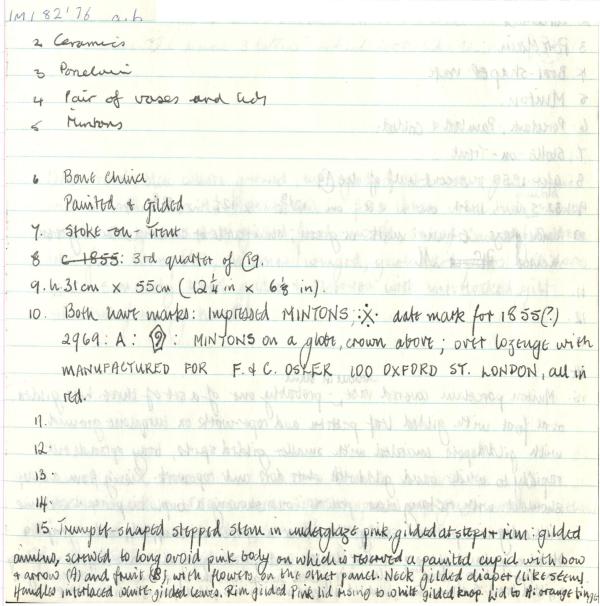 IM 82'76 a.b
2 Ceramics
3 Porcelain
4 Pair of vases and lids
5 Mintons
6 Bone China
Painted & gilded
7. Stoke-on-Trent
8 c 1855: 3rd quarter of C19.
9. h. 31cm x 55cm (12 1/4 in x 6 1/8 in).
10. Both have marks: Impressed MINTONS date mark for 1855(?)
2969: A: : MINTONS on a globe, crown above; over lozenge with
MANUFACTURED FOR F. & C. OSLER 100 OXFORD ST. LONDON, all in
red.
11.
12.
13.
14.
15. Trumpet-shaped stepped stem in underglaze pink, gilded at steps & rim: gilded
annulus, screwed to long ovoid pink body on which is reserved a painted cupid with bow
& arrow (A) and fruit (B), with flowers on the other panel. Neck gilded diaper (like stem).
Handles interlaced white gilded leaves. Rim gilded Pink lid rising to white gilded knop. Lid to A: orange